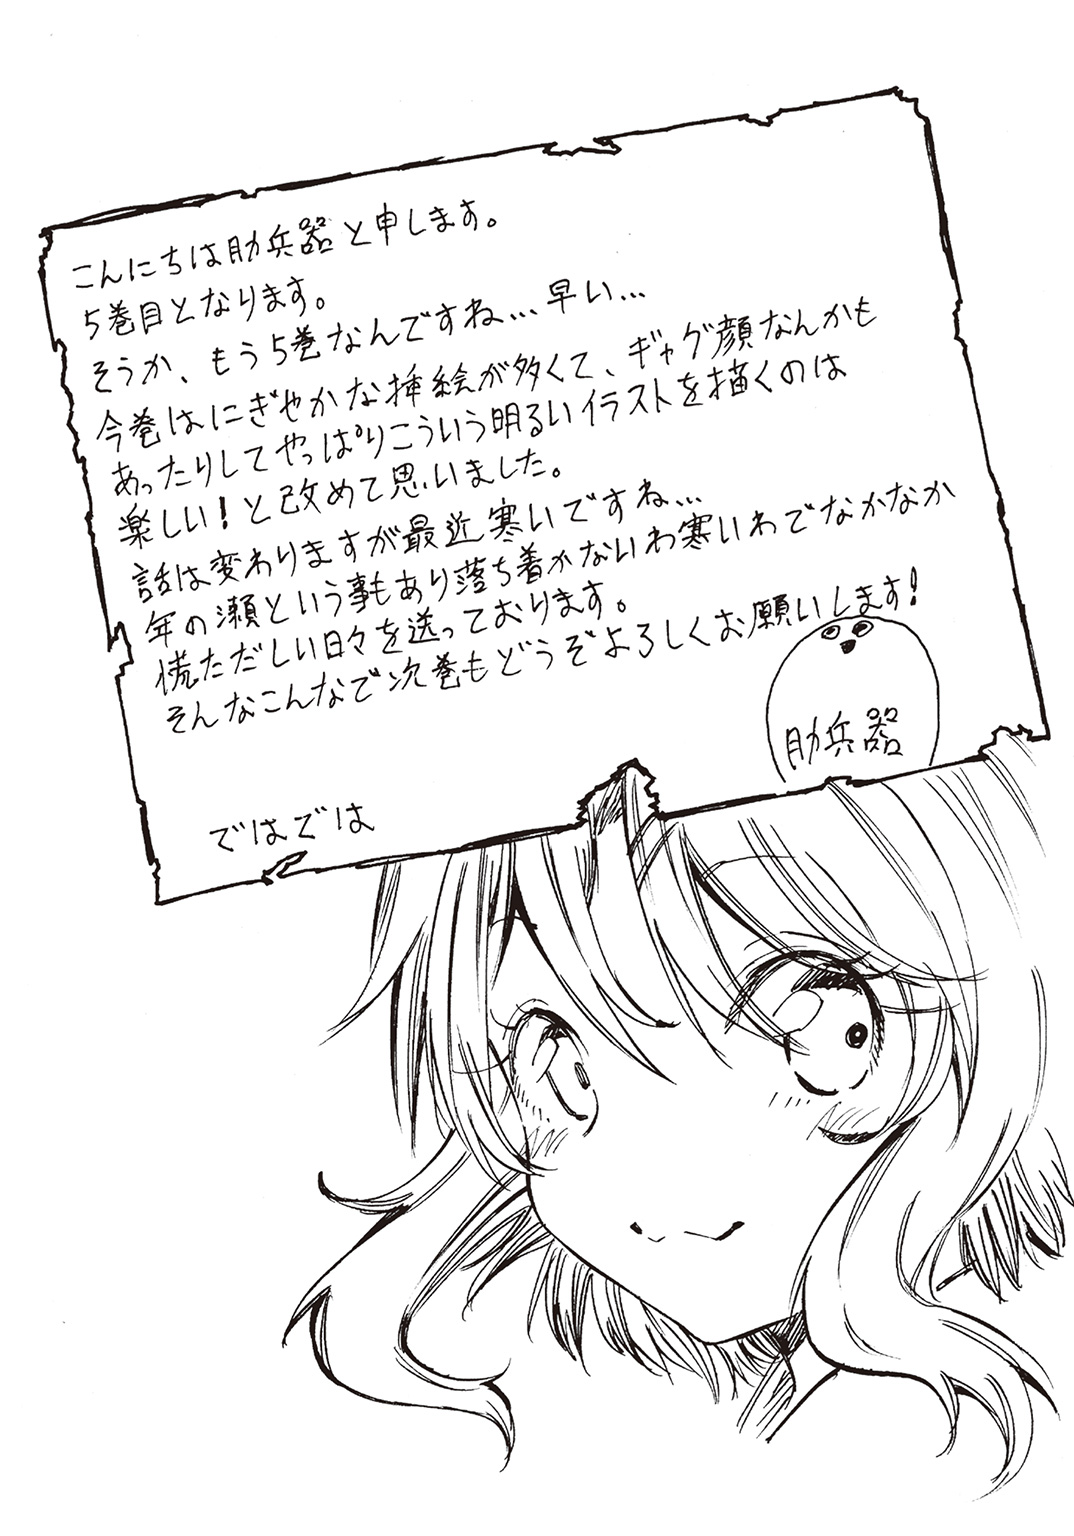 こんにちは助兵器と申します。
5巻目となります。
そうか、もう5巻なんですね…早い…
今巻はにぎやかな挿絵が多くて、ギャグ顔なんかも
あったりしてやっぱりこういう明るいイラストを描くのは
楽しい！と改めて思いました。
話は変わりますが最近寒いですね…
年の瀬という事もあり落ち着かないわ寒いわでなかなか
慌ただしい日々を送っております。
そんなこんなで次巻もどうぞよろしくお願いします！
助兵器
ではでは